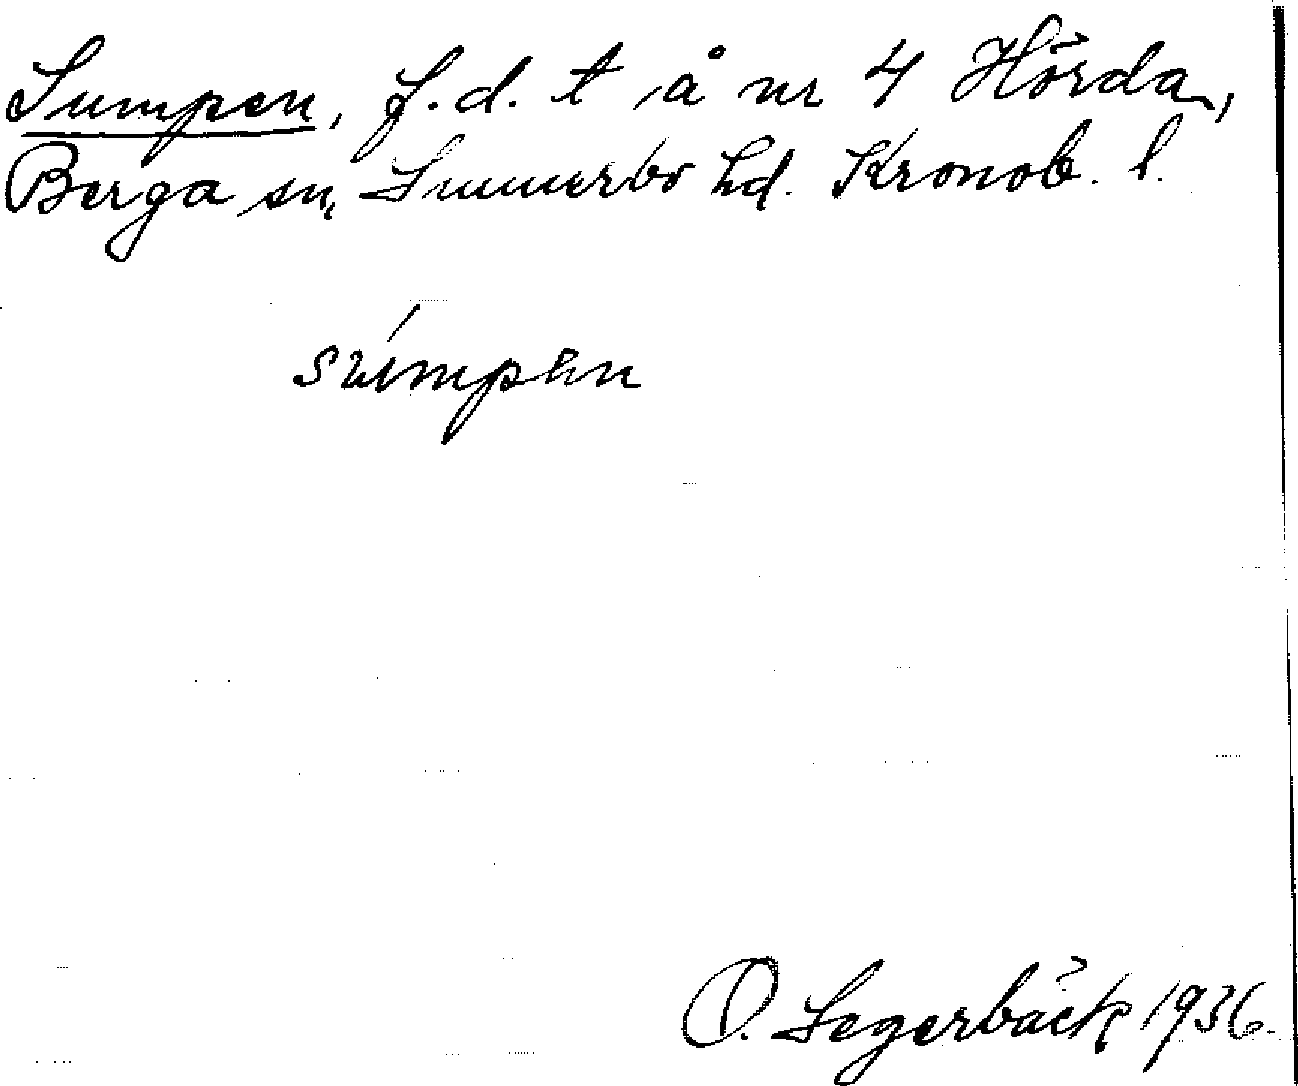 Sumpen, f.d. t å nr 4 Hörda,
Berga sn, Sunnerbo hd. Kronob. l.
súmpen
O. Segerbäck 1936.